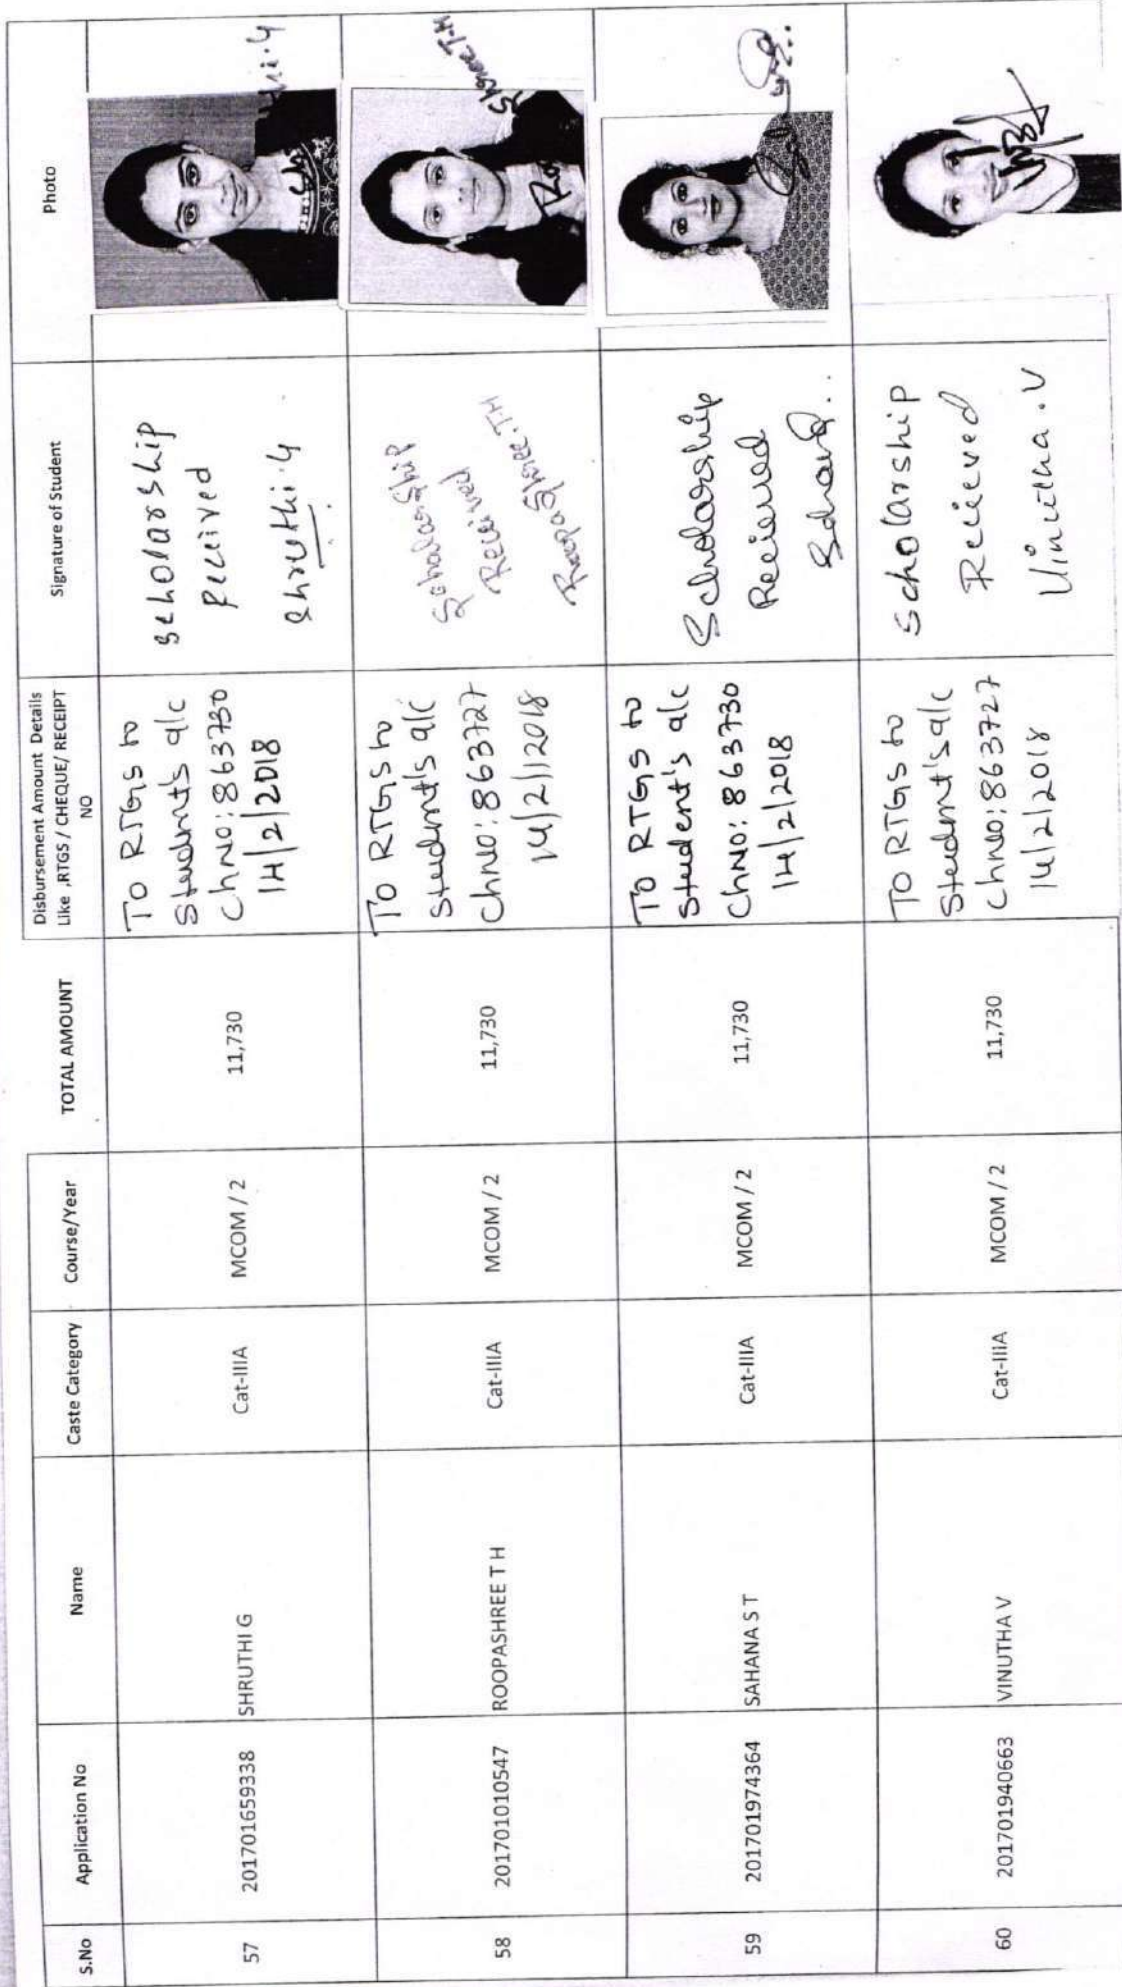 S.No
Application No
Name
Caste Category
Course/Year
TOTAL AMOUNT
Disbursement Amount Details
Like ,RTGS / CHEQUE/ RECEIPT
NO
Signature of Student
Photo
57
201701659338
SHRUTHI G
Cat-IIIA
MCOM / 2
11,730
TO RTGS to
Student's a/c
Ch NO: 863730
14/2/2018
scholarship
received
Shruthi.G
58
201701010547
ROOPASHREE T H
Cat-IIIA
MCOM / 2
11,730
TO RTGS to
Student's a/c
Ch NO: 863727
14/2/2018
Scholarship
Received
RoopaShree.T.H
Shree.T.H
59
201701974364
SAHANA S T
Cat-IIIA
MCOM / 2
11,730
TO RTGS to
Student's a/c
Ch NO: 863730
14/2/2018
Scholarship
Received
60
201701940663
VINUTHA V
Cat-IIIA
MCOM / 2
11,730
TO RTGS to
Student's a/c
Ch NO: 863727
14/2/2018
Scholarship
Recieved
Vinutha.V